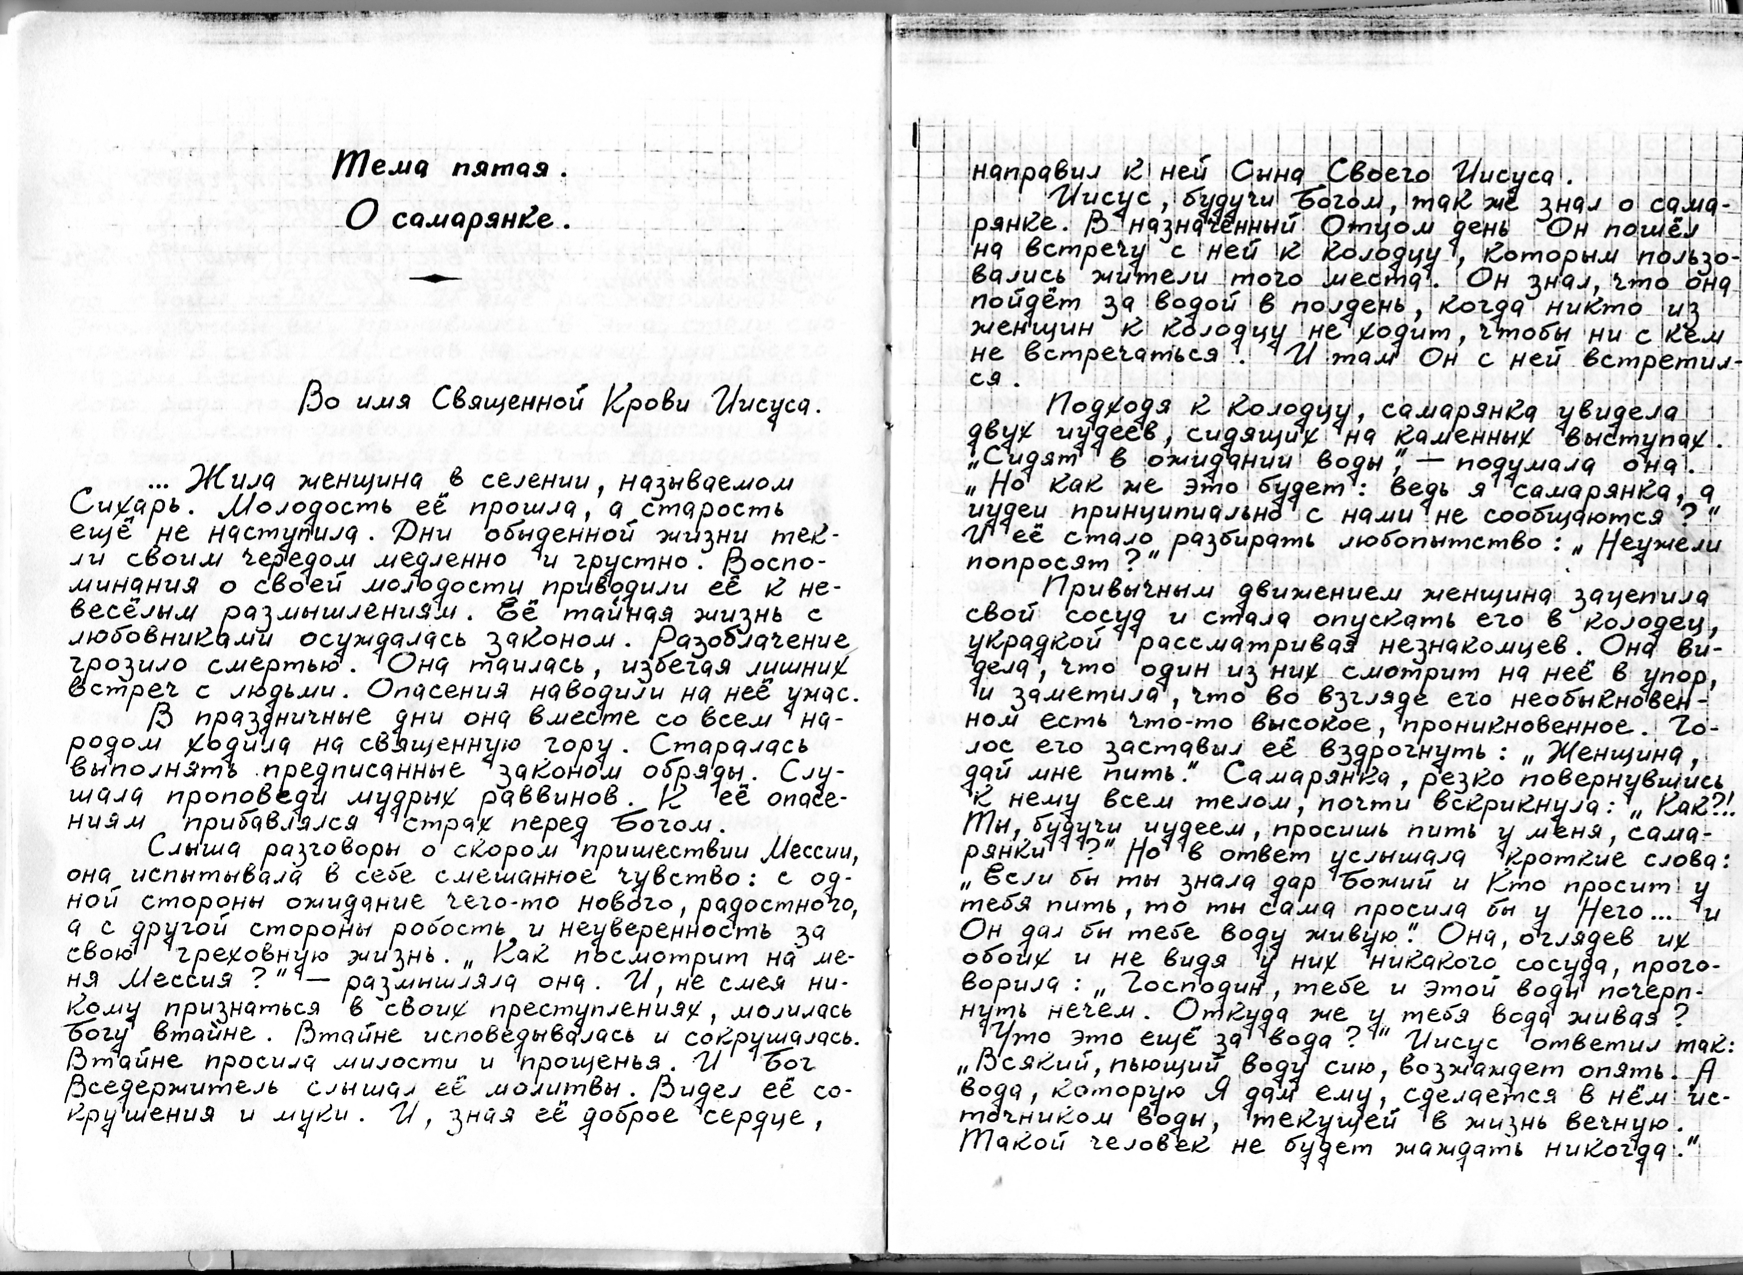 Тема пятая.
О самарянке.
Во имя Священной Крови Иисуса.
... Жила женщина в селении, называемом
Сихарь. Молодость её прошла, а старость
ещё не наступила. Дни обыденной жизни тек-
ли своим чередом медленно и грустно. Воспо-
минания о своей молодости приводили её к не-
весёлым размышлениям. Её тайная жизнь с
любовниками осуждалась законом. Разоблачение
грозило смертью. Она таилась, избегая лишних
встреч с людьми. Опасения наводили на неё ужас.
В праздничные дни она вместе со всем на-
родом ходила на священную гору. Старалась
выполнять предписанные законом обряды. Слу-
шала проповеди мудрых раввинов. К её опасе-
ниям прибавлялся страх перед Богом.
Слыша разговоры о скором пришествии Мессии,
она испытывала в себе смешанное чувство: с од-
ной стороны ожидание чего-то нового, радостного,
а с другой стороны робость и неуверенность за
свою греховную жизнь. „Как посмотрит на ме-
ня Мессия?" — размышляла она. И, не смея ни-
кому признаться в своих преступлениях, молилась
Богу втайне. Втайне исповедывалась и сокрушалась.
Втайне просила милости и прощенья. И Бог
Вседержитель слышал её молитвы. Видел её со-
крушения и муки. И, зная её доброе сердце,
направил к ней Сына Своего Иисуса.
Иисус, будучи Богом, так же знал о сама-
рянке. В назначенный Отцом день Он пошёл
на встречу с ней к колодцу, которым пользо-
вались жители того места. Он знал, что она
пойдёт за водой в полдень, когда никто из
женщин к колодцу не ходит, чтобы ни с кем
не встречаться. И там Он с ней встретил-
ся.
Подходя к колодцу, самарянка увидела
двух иудеев, сидящих на каменных выступах.
„Сидят в ожидании воды", — подумала она.
„Но как же это будет: ведь я самарянка, а
иудеи принципиально с нами не сообщаются?"
И её стало разбирать любопытство: „Неужели
попросят?"
Привычным движением женщина зацепила
свой сосуд и стала опускать его в колодец,
украдкой рассматривая незнакомцев. Она ви-
дела, что один из них смотрит на неё в упор,
и заметила, что во взгляде его необыкновен-
ном есть что-то высокое, проникновенное. Го-
лос его заставил её вздрогнуть: „Женщина,
дай мне пить." Самарянка, резко повернувшись
к нему всем телом, почти вскрикнула: „Как?!
Ты, будучи иудеем, просишь пить у меня, сама-
рянки ?" Но в ответ услышала кроткие слова:
„Если бы ты знала дар Божий и Кто просит у
тебя пить, то ты сама просила бы у Него... и
Он дал бы тебе воду живую." Она, оглядев их
обоих и не видя у них никакого сосуда, прого-
ворила: „Господин, тебе и этой воды почерп-
нуть нечем. Откуда же у тебя вода живая?
Что это ещё за вода?" Иисус ответил так:
„Всякий, пьющий воду сию, возжаждет опять. А
вода, которую Я дам ему, сделается в нём ис-
точником воды, текущей в жизнь вечную.
Такой человек не будет жаждать никогда."